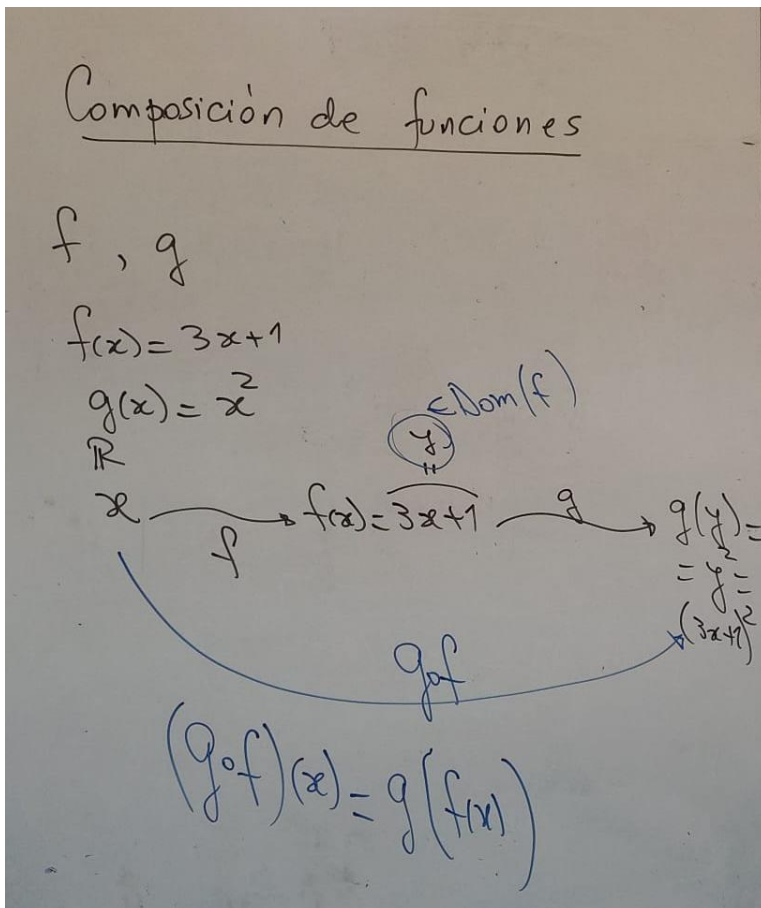 Composición de funciones
f , g
f(x) = 3x+1
g(x) = x²
∈Dom(f)
y
=
ℝ
x f f(x) = 3x+1 g g(y) =
= y² =
(3x+1)²
g∘f
(g∘f)(x) = g(f(x))